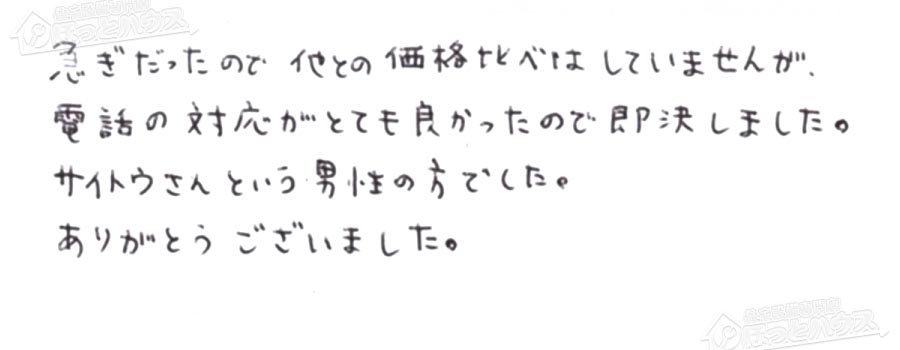 急ぎだったので 他との価格比べはしていませんが、
電話の対応がとても良かったので即決しました。
サイトウさんという男性の方でした。
ありがとうございました。
ほっとハウス
ほっとハウス